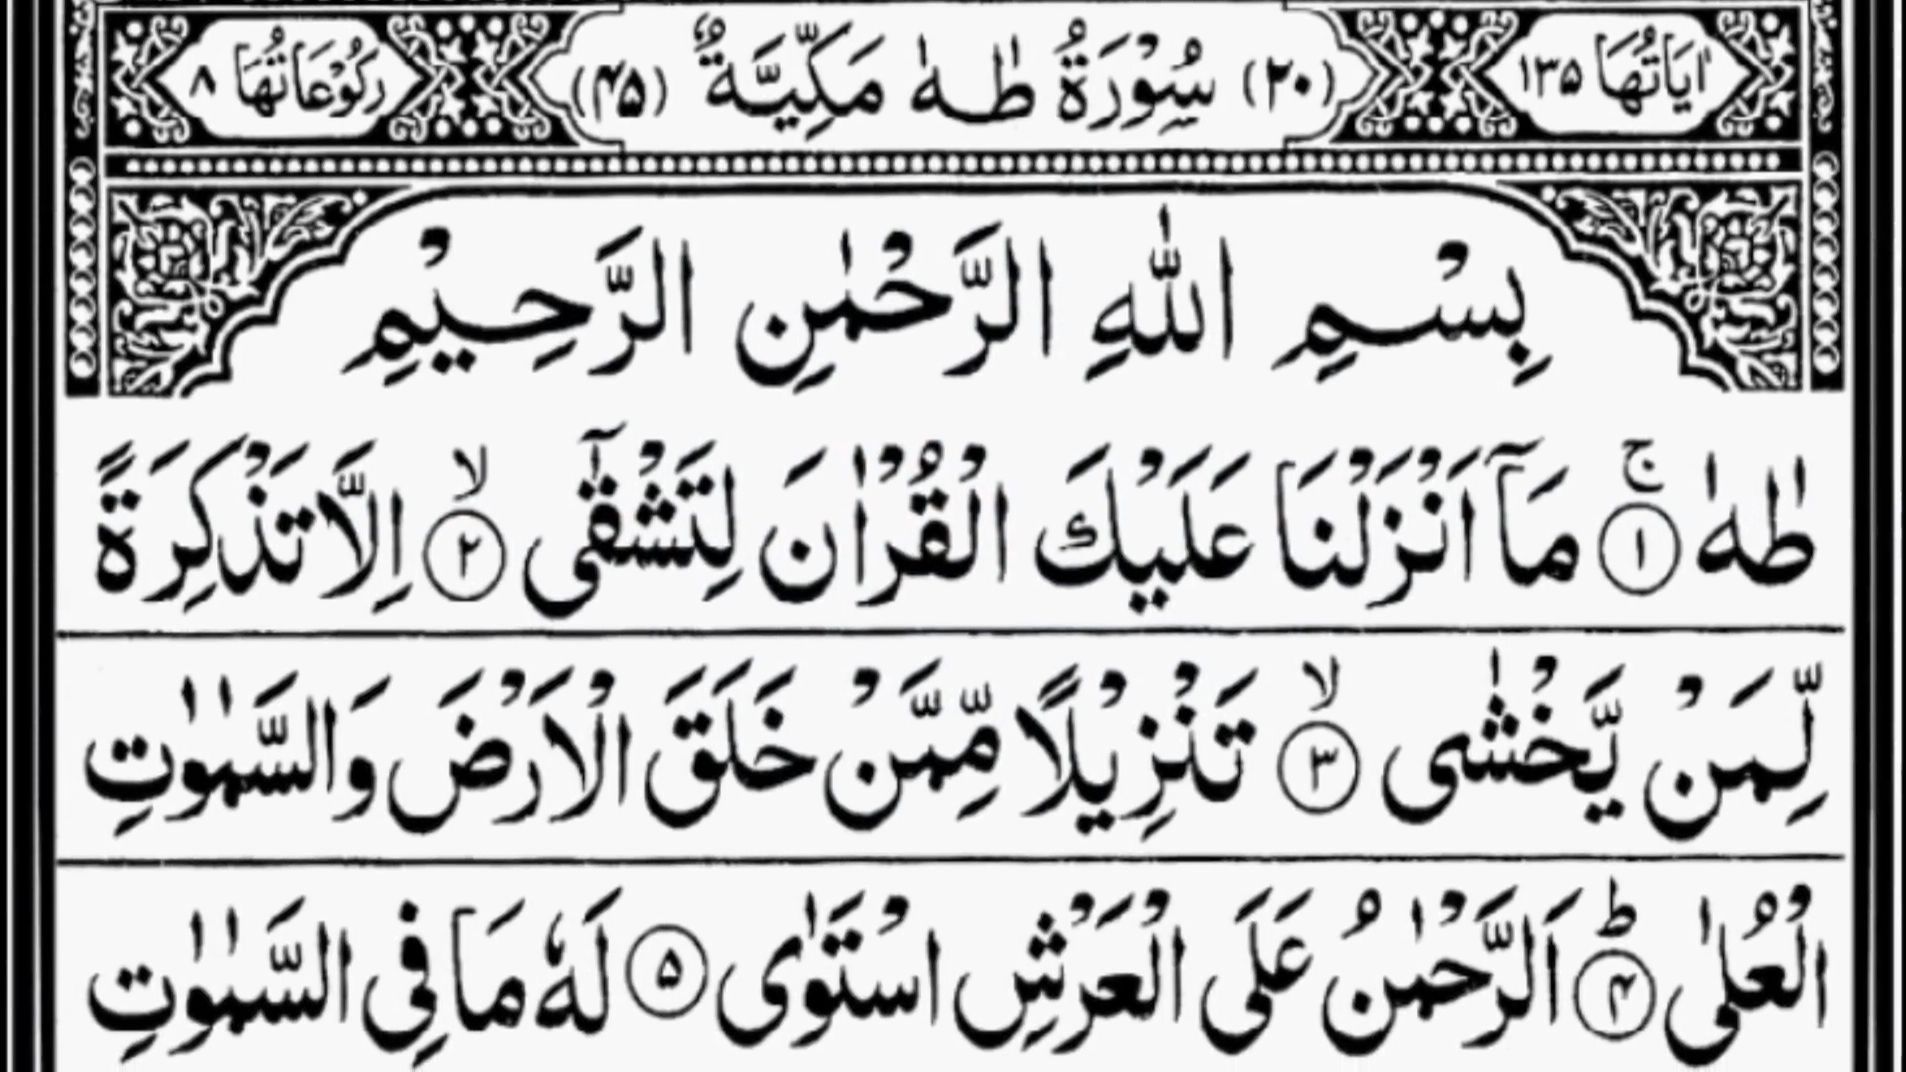 اٰيَاتُهَا ١٣٥ (٢٠) سُوْرَةُ طٰهٰ مَكِّيَّةٌ (۴۵) رَكُوْعَاتُهَا ٨
بِسْمِ اللّٰهِ الرَّحْمٰنِ الرَّحِيْمِ
طٰهٰ ۚ ﴿١﴾ مَآ اَنْزَلْنَا عَلَيْكَ الْقُرْاٰنَ لِتَشْقٰٓى ۙ ﴿٢﴾ اِلَّا تَذْكِرَةً
لِّمَنْ يَّخْشٰى ۙ ﴿٣﴾ تَنْزِيْلًا مِّمَّنْ خَلَقَ الْاَرْضَ وَالسَّمٰوٰتِ
الْعُلٰى ؕ ﴿۴﴾ اَلرَّحْمٰنُ عَلَى الْعَرْشِ اسْتَوٰى ﴿۵﴾ لَهٗ مَا فِى السَّمٰوٰتِ